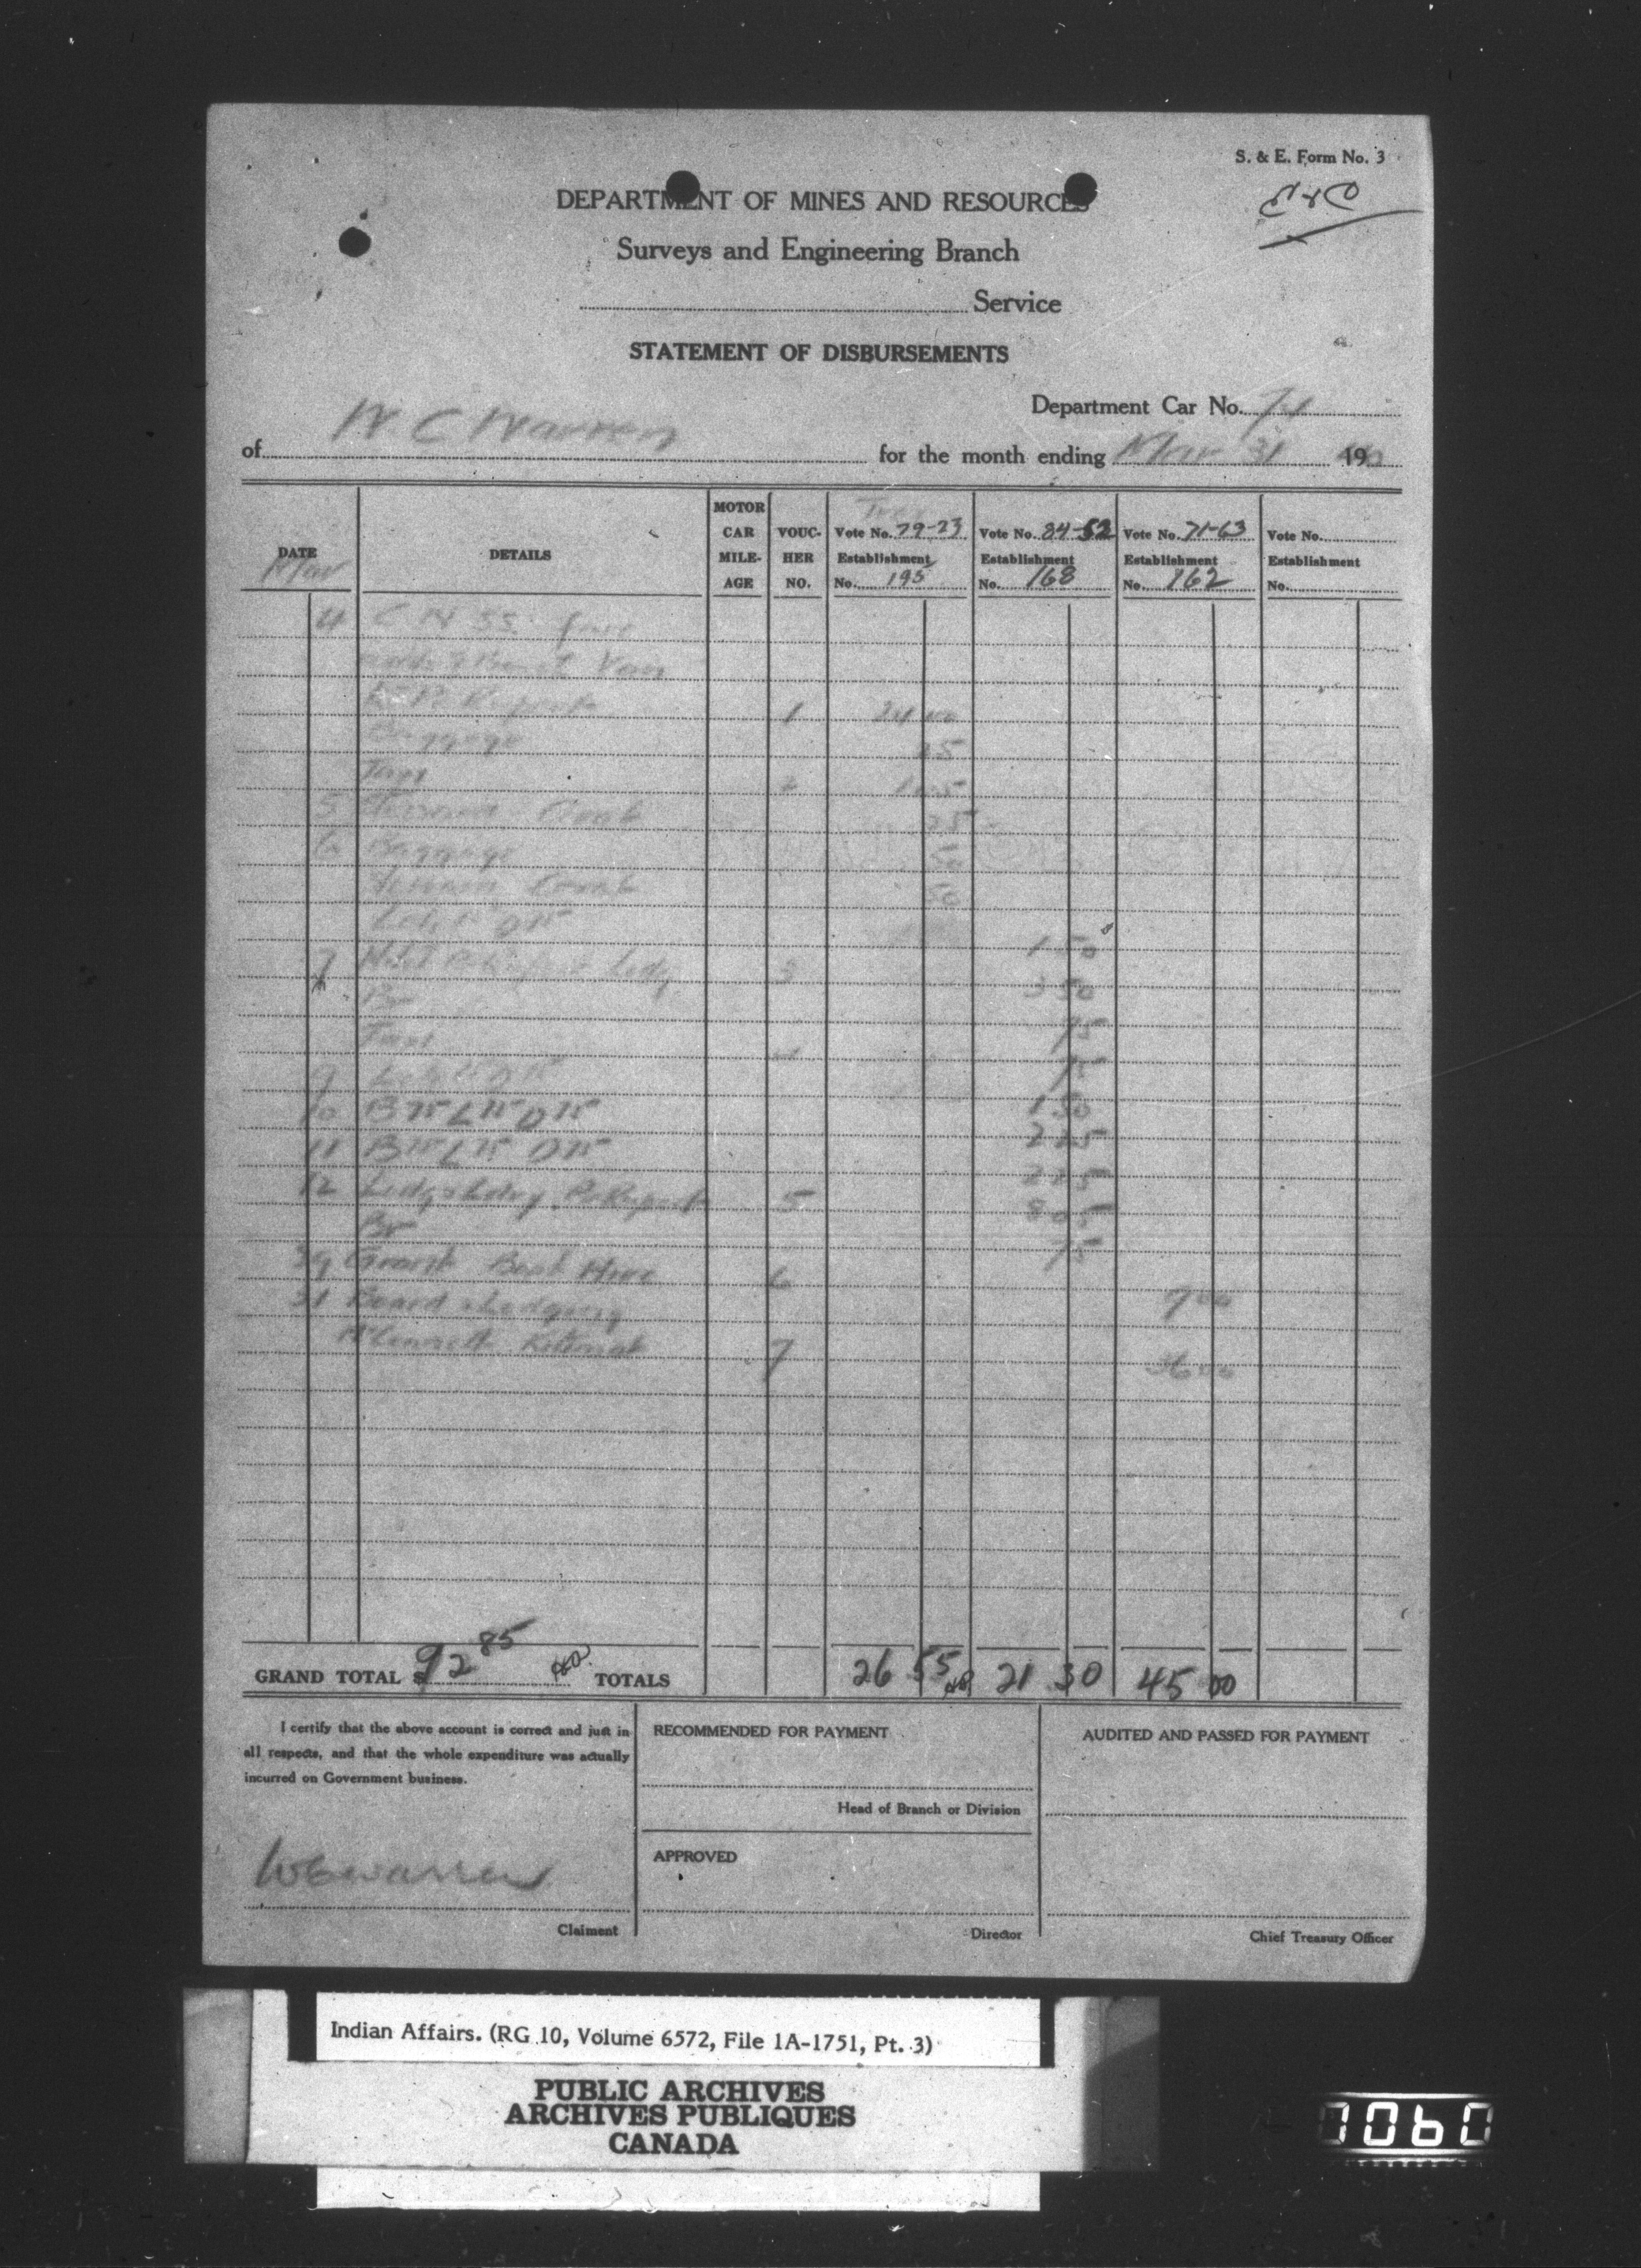 S. & E. Form No. 3
E & C
DEPARTMENT OF MINES AND RESOURCES
Surveys and Engineering Branch
Service
STATEMENT OF DISBURSEMENTS
Department Car No.
of W. C Warren for the month ending Mar 31 1940
DATE DETAILS MOTOR CAR MILE-AGE VOUC-HER NO. Vote No. 79-23 Establishment No. 195 Vote No. 84-52 Establishment No. 168 Vote No. 71-63 Establishment No. 162 Vote No. Establishment No.
Mar
4 C N SS fare
Van
to P. Rupert 1 24 00
Baggage 25
Taxi 2
5 25
6 Baggage 50
50
L 75 D 75 1 50
7 Hotel 3 3 50
Br 75
Taxi 75
9 D 75 1 50
10 B 75 L 75 D 75 2 25
11 B 75 L 75 D 75 2 25
12 Lodg & Ldry P. Rupert 5 8 05
Br 75
29 Grant Boat Hire 6 9 00
31 Board & Lodging
Kitimat 7 36 00
GRAND TOTAL $ 92 85 TOTALS 26 55 21 30 45 00
I certify that the above account is correct and just in
all respects, and that the whole expenditure was actually
incurred on Government business.
WCWarren
Claiment
RECOMMENDED FOR PAYMENT
Head of Branch or Division
APPROVED
Director
AUDITED AND PASSED FOR PAYMENT
Chief Treasury Officer
Indian Affairs. (RG 10, Volume 6572, File 1A-1751, Pt. 3)
PUBLIC ARCHIVES
ARCHIVES PUBLIQUES
CANADA
1060